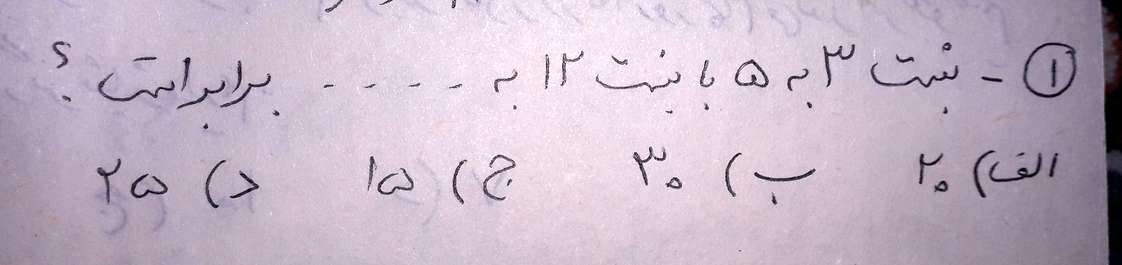 ۱- نسبت ۳ به ۵ با نسبت ۱۲ به ---- برابر است ؟
الف) ۲۰ ب) ۳۰ ج) ۱۵ د) ۲۵